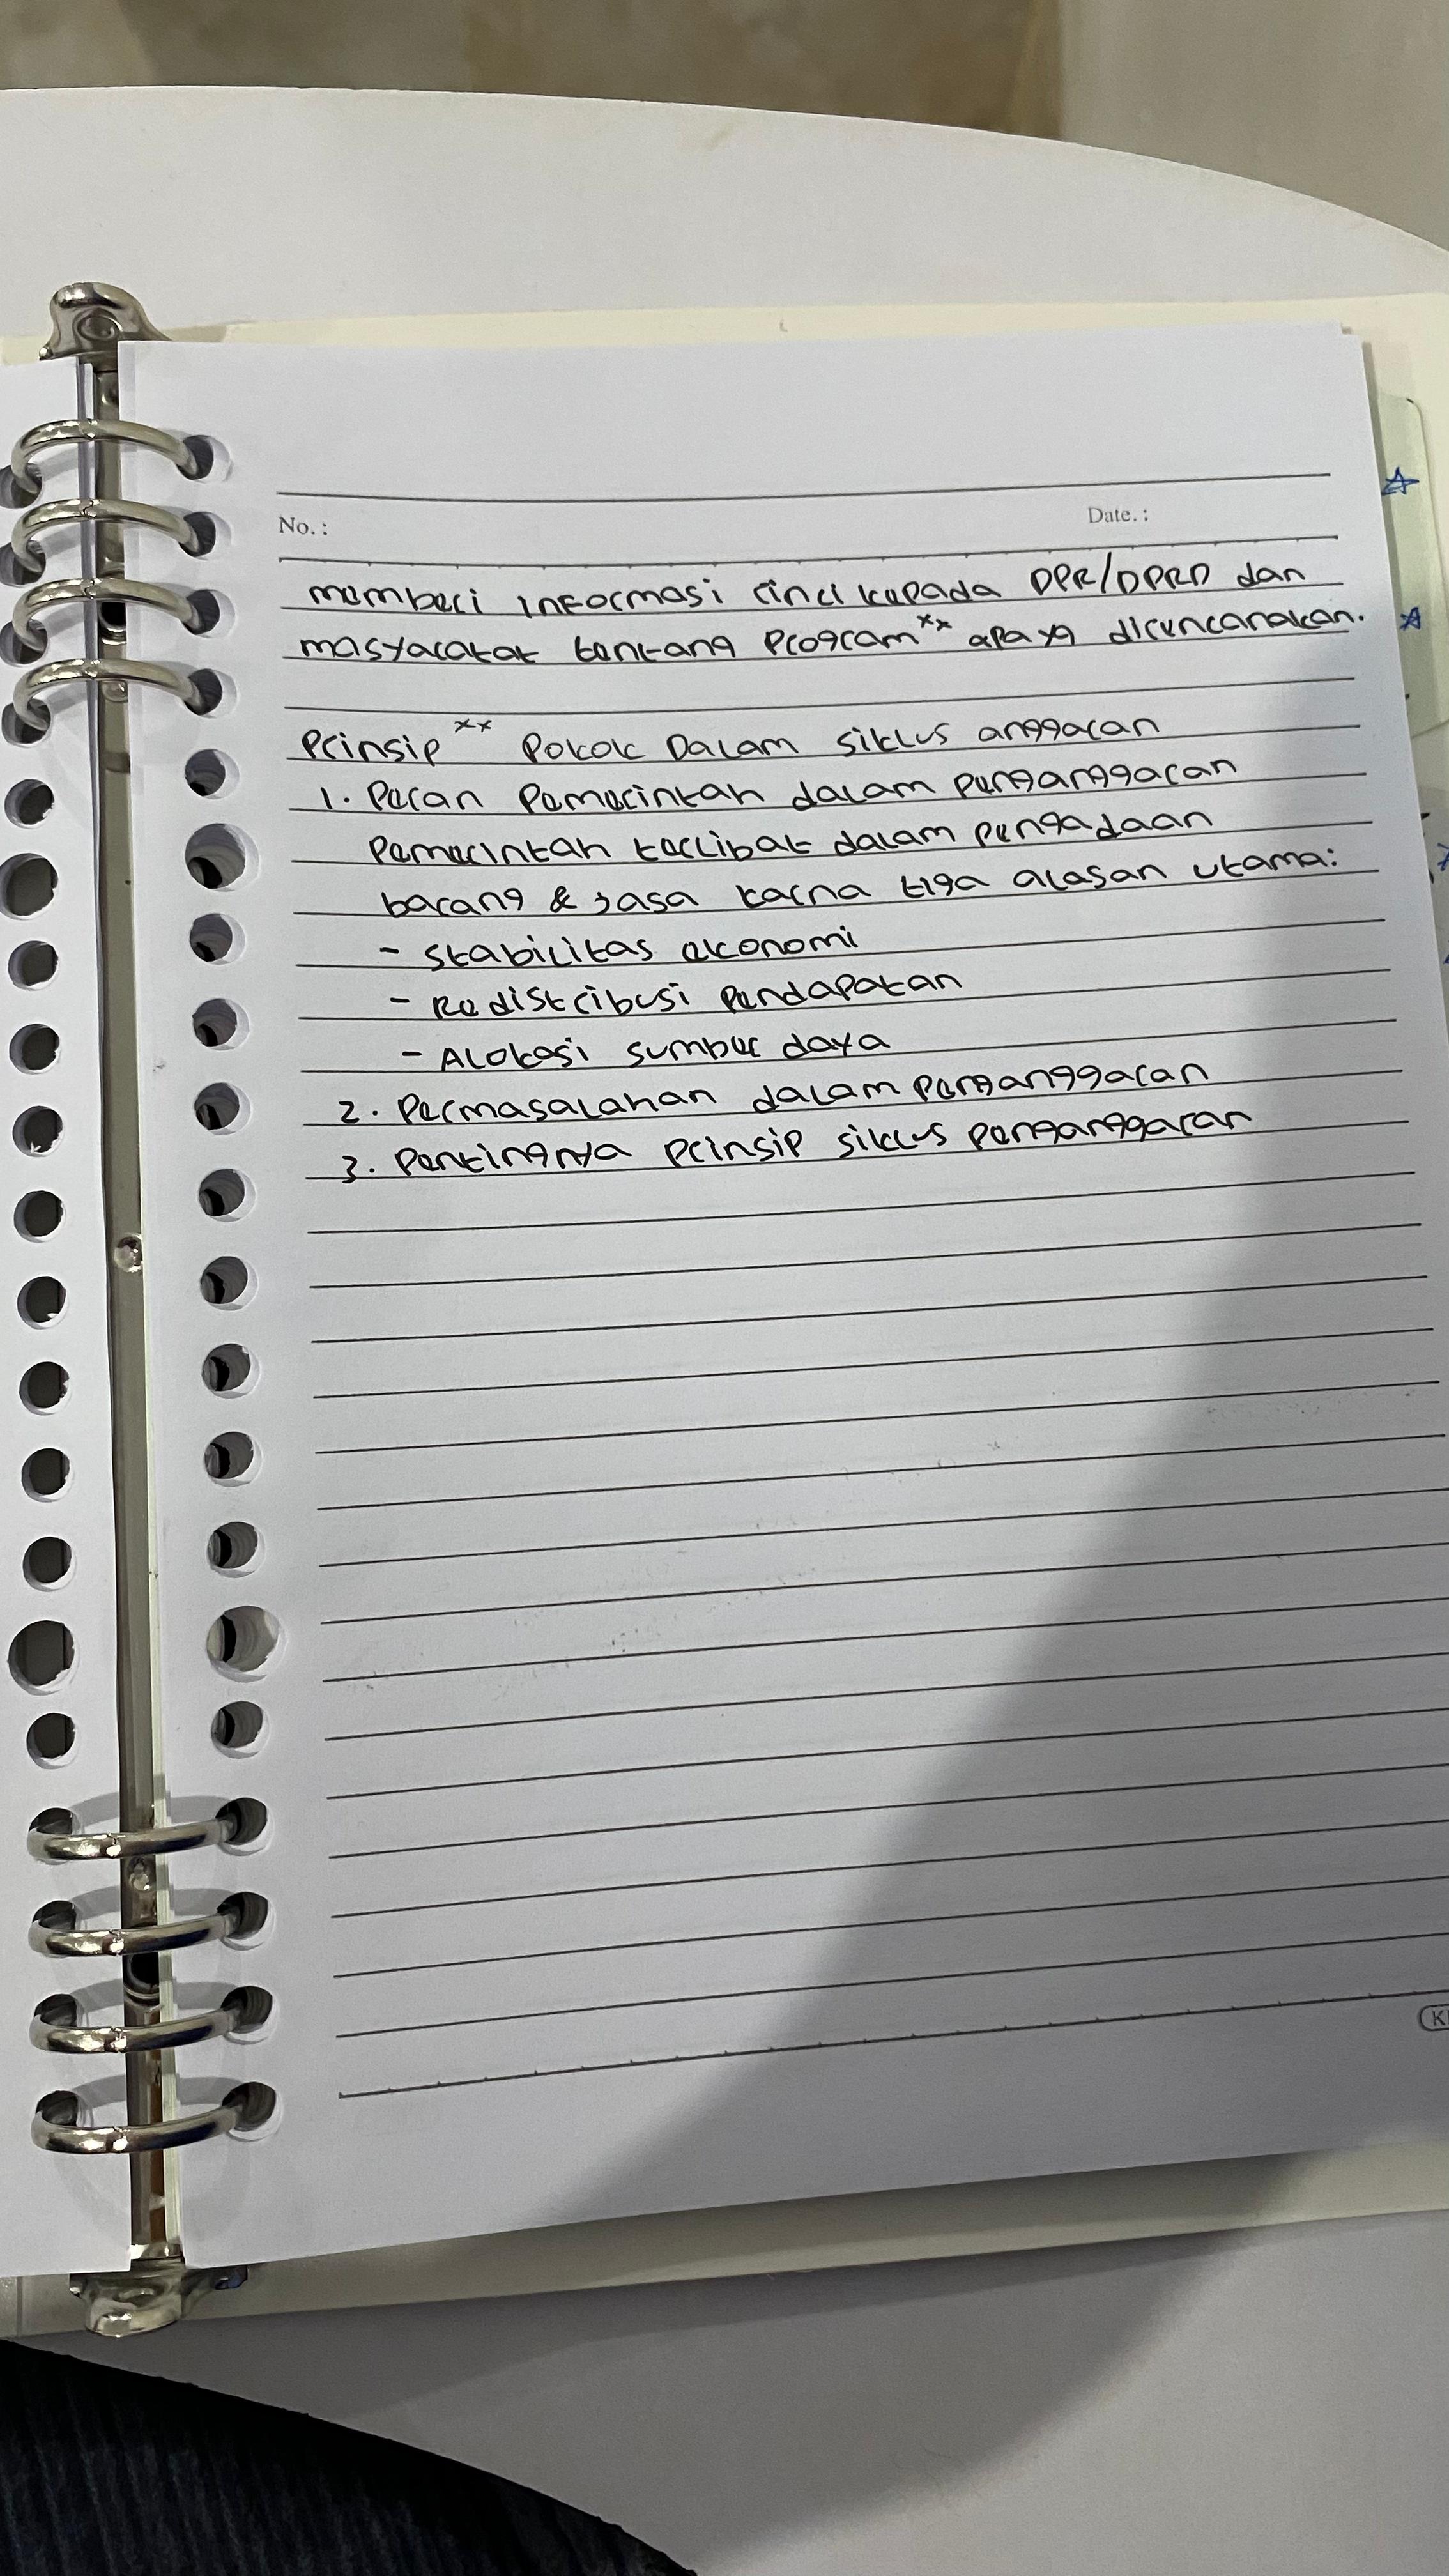 No. :
Date. :
memberi informasi rinci kepada DPR/DPRD dan
masyarakat tentang Program xx apa yg direncanakan.
Prinsip xx Pokok Dalam siklus anggaran
1. Peran Pemerintah dalam penganggaran
Pemerintah terlibat dalam pengadaan
barang & jasa karna tiga alasan utama:
- stabilitas ekonomi
- Redistribusi Pendapatan
- Alokasi sumber daya
2. Permasalahan dalam penganggaran
3. Pentingnya Prinsip siklus penganggaran